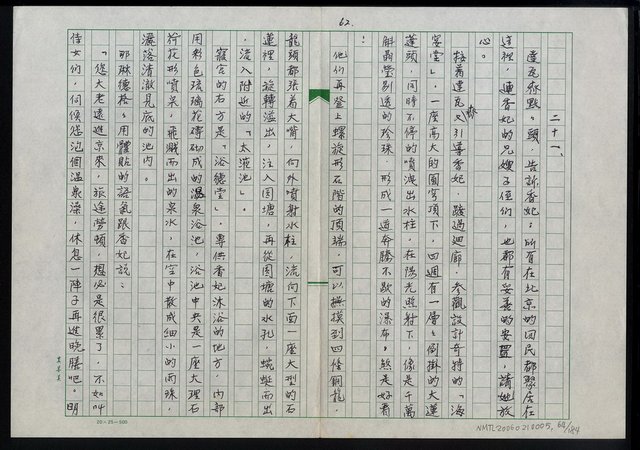 62.
二十一、
達瓦孜點。頭，告訴香妃；所有在北京的回民都聚居在
這裡，連香妃的兄嫂子侄們，也都有妥善的安置，請她放
心。
接着達瓦孜又引導香妃，踱過迴廊，參觀設計奇特的「海
宴堂」，一座高大的圓穹頂下，四週有一層。倒掛的大蓮
蓬頭，同時不停的噴洩出水柱，在陽光照射下，像是千萬
斛晶瑩剔透的珍珠，形成一道奔騰不歇的瀑布。煞是好看
！
他們再登上螺旋形石階的頂端，可以撫摸到四條銅龍，
龍頭都張着大嘴，向外噴射水柱，流向下面一座大型的石
蓮裡，旋轉溢出，注入圓塘，再從圓塘的水孔，蜿蜒而出
，流入附近的「太液池」。
寢宮的右方是「浴德堂」，專供香妃沐浴的地方，內部
用彩色琉璃花磚砌成的溫泉浴池，浴池中央是一座大理石
荷花形噴泉，飛濺而出的泉水，在空中散成細小的雨珠，
灑落清澈見底的池內。
那琳德格。用體貼的語氣跟香妃說：
「您大老遠進京來，旅途勞頓，想必是很累了，不如叫
侍女們，伺候您泡個溫泉澡，休息一陣子再進晚膳吧。明
20×25＝500
NMTL20060210005, 62/184